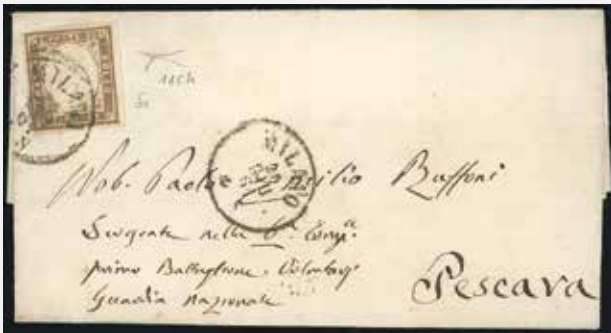 MILANO
MILANO
Nob. Paolo Emilio Buffoni
Sergente nella 6ª Compª
primo Battaglione Volontarj
Guardia Nazionale
Pescara